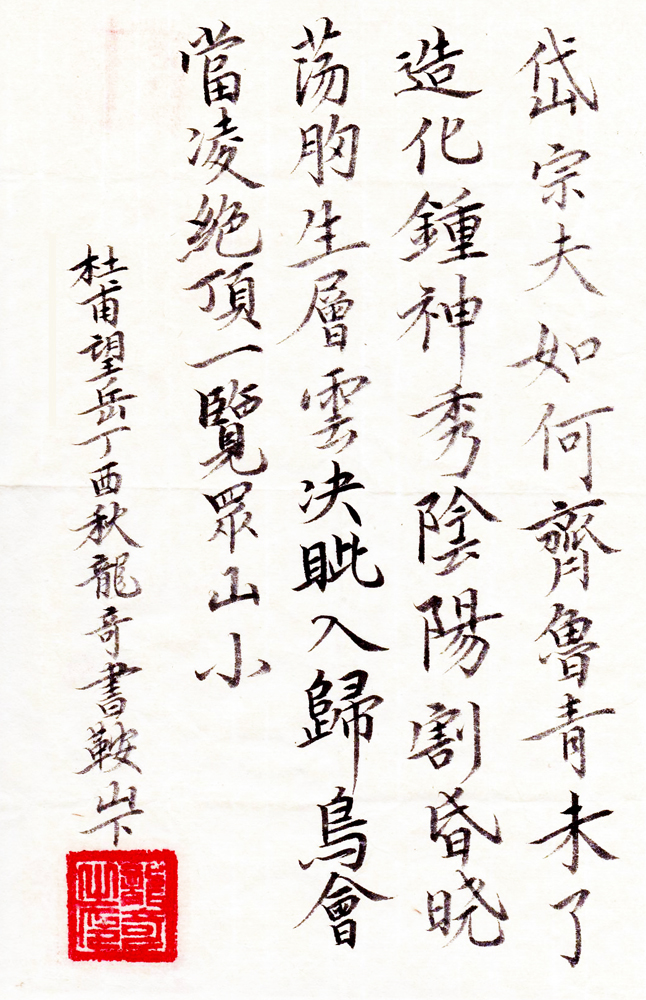 岱宗夫如何齊魯青未了
造化鍾神秀陰陽割昏晓
荡胸生層雲决眦入歸鳥會
當凌絶頂一覽眾山小
杜甫望岳丁酉秋龍奇書鞍山下
龍奇之印